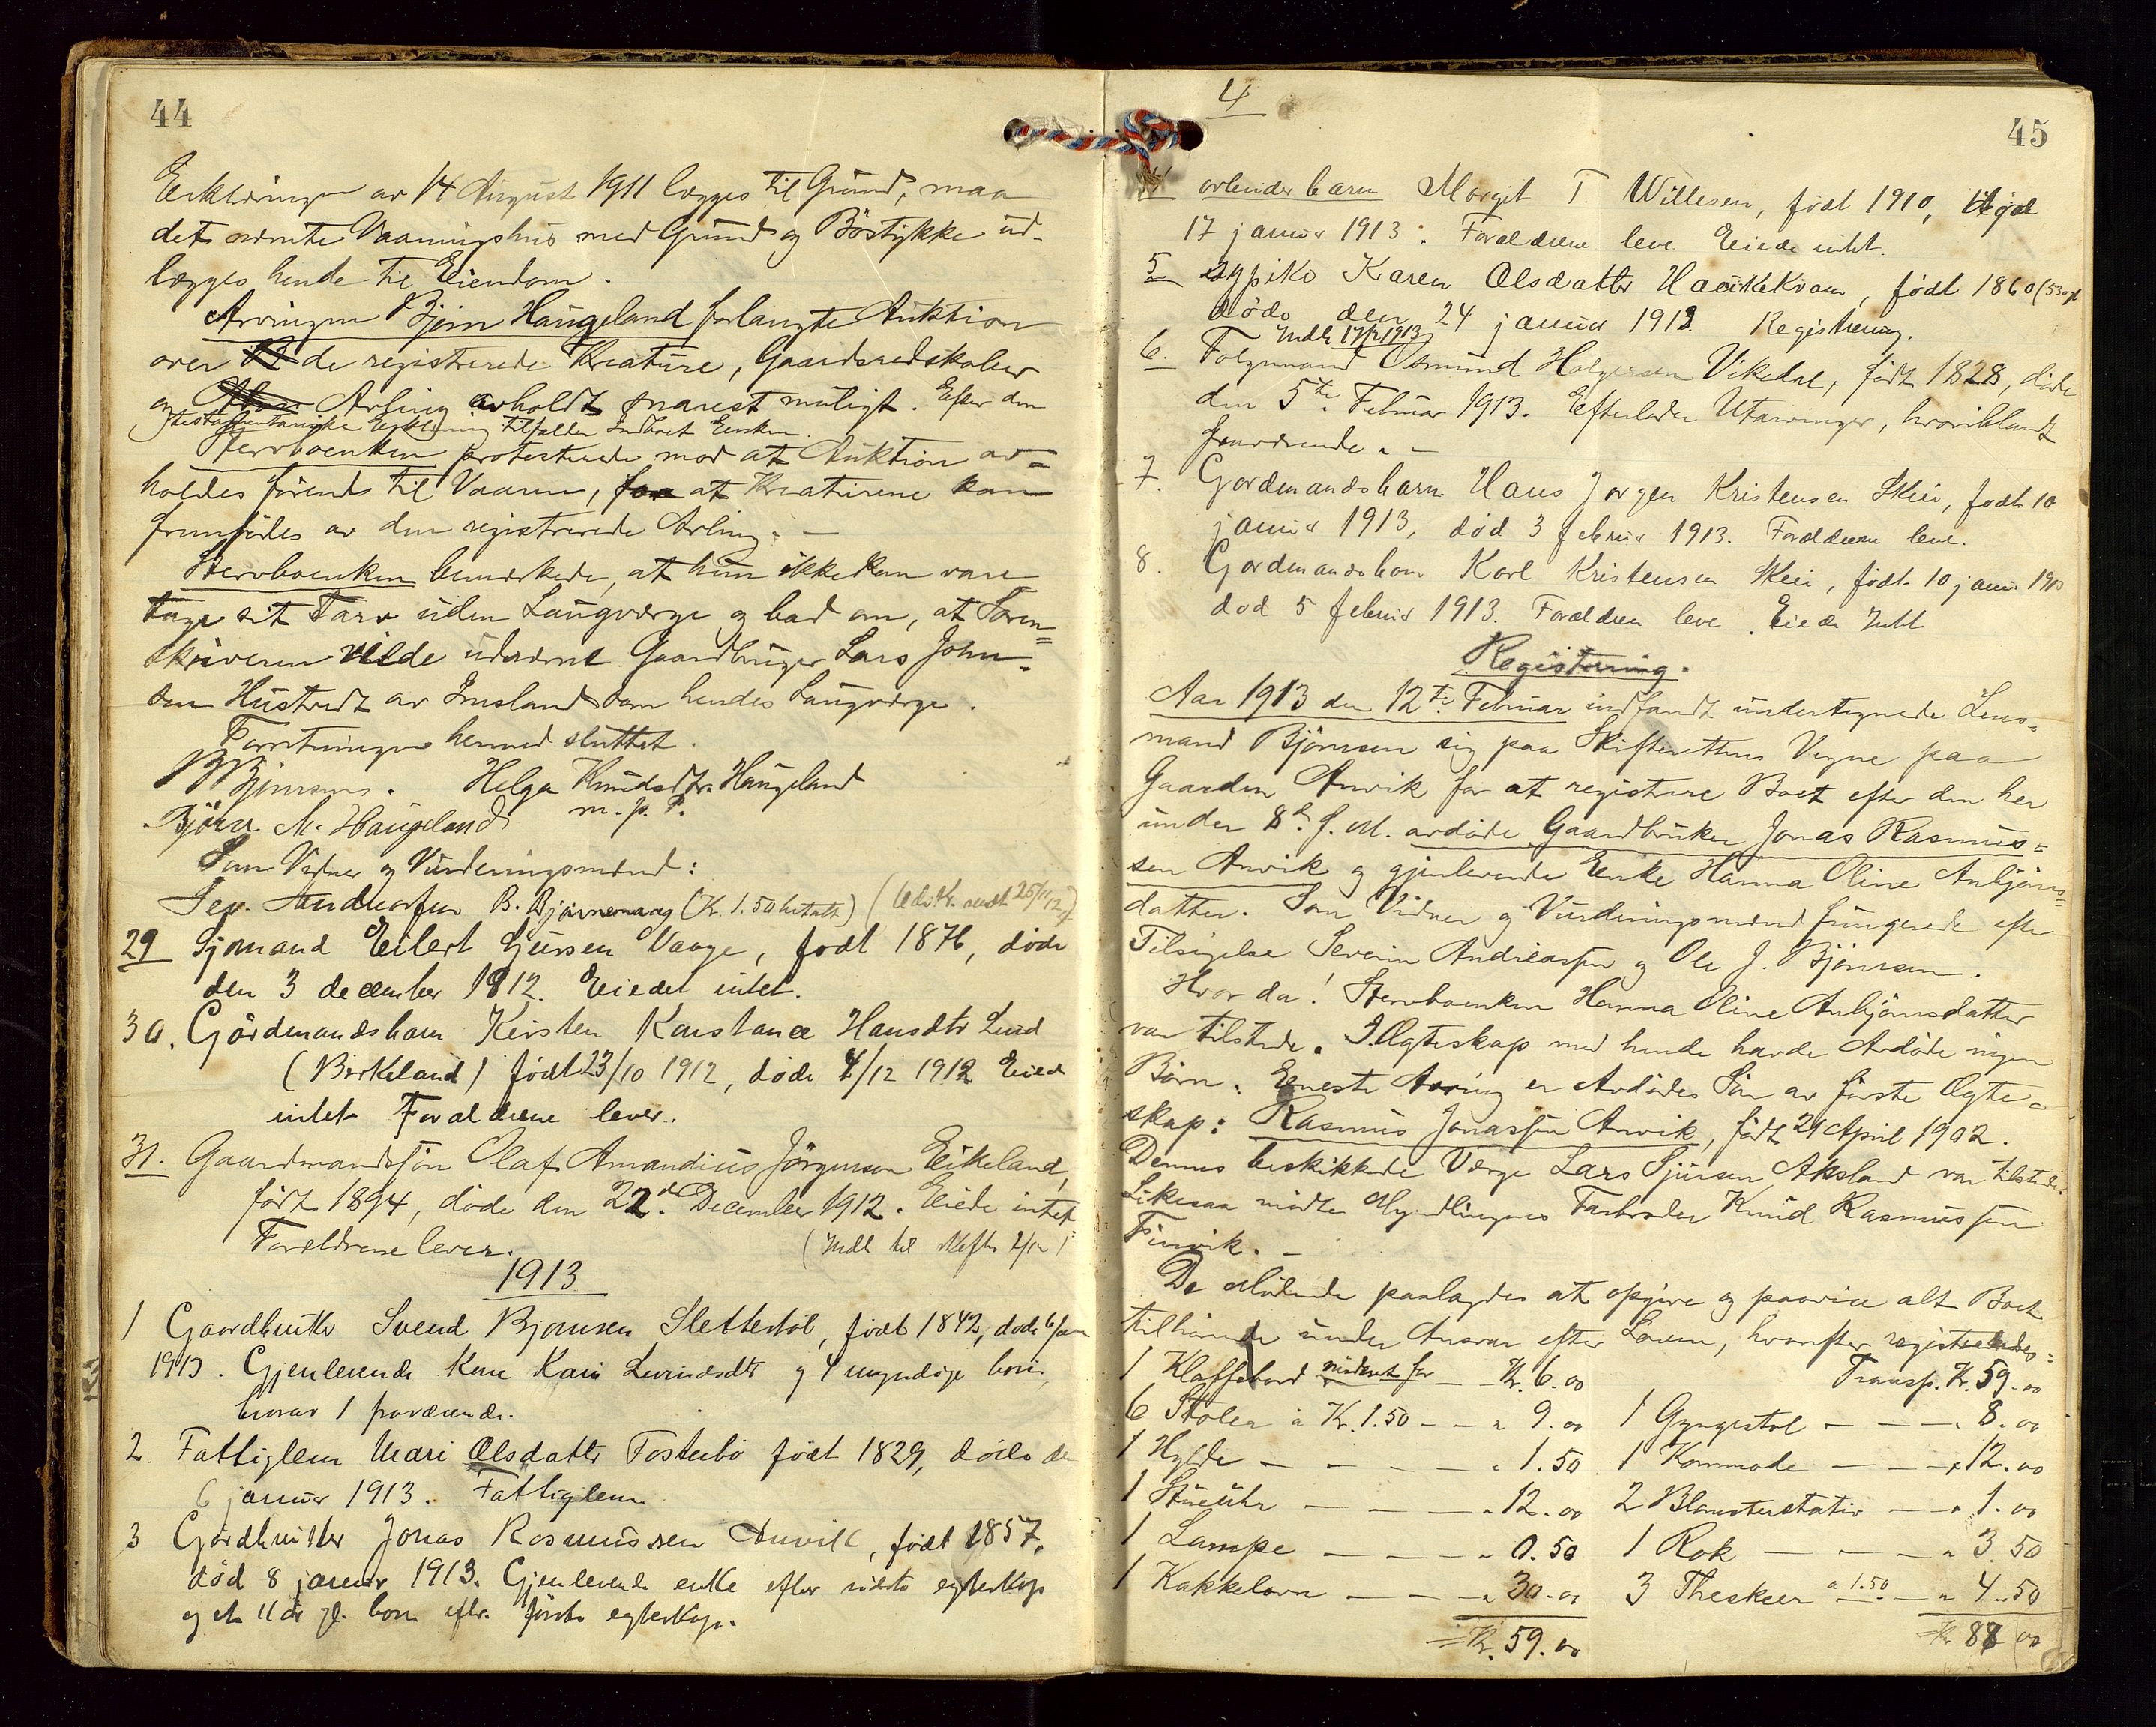 44
Erklæringen av 14 August 1911 lægges til Grund, maa
det nævnte Vaaningshus med Grund og Bøstykke ud-
lægges hende til Eiendom.
Arvingen Bjørn Haugeland forlangte Auktion
over de registrerede Kreature, Gaardsredskaber
og Avling avholdt snarest muligt. Efter den
testamentariske Erklæring tilfalder Indboet Enken.
Stervboenken protesterede mod at Auktion av-
holdes førend til Vaaren, at Kreaturene kan
fremfødes av den registrerede Avling. -
Stervboenken bemærkede, at hun ikke kan vare-
tage sit Tarv uden Laugværge og bad om, at Soren-
skriveren vilde udnævne Gaardbruger Lars John-
sen Hustredt av Imsland som hendes Laugværge.
Forretningen hermed sluttet.
B Bjørnsens. Helga Knudsdtr. Haugeland
Bjørn M. Haugeland m. p. P.
Som Vidner og Vurderingsmænd:
Sev. Andreassen B. Bjørnevaag (Kr. 1.50 betalt) (Udskr. sendt 25/11 12)
29 Sjømand Eilert Sjursen Vaage, født 1876, døde
den 3 december 1912. Eiedet intet.
30. Gårdmandsbarn Kirsten Konstance Hansdtr Lund
(Birkeland) født 23/10 1912, døde 4/12 1912 Eied
intet Foraldrene lever.
31. Gaardmandssøn Olaf Amandius Jørgensen Eikeland,
født 1894, døde den 22d. December 1912. Eiede intet
Forældrene lever. (Indb til skifter 2/12 1
1913
1 Gaardbruker Svend Bjørnsen Slettestøl, født 1842, døde 6/jan
1913. Gjenlevende Kone Kari Sevrinsdtr og 4 myndige born,
hvorav 1 fraværende.
2. Fattiglem Mari Olsdatter Fosterbø født 1829, døde de
6 januar 1913. Fattiglem
3 Gårdbruker Jonas Rasmussen Anvik, født 1857,
død 8 januar 1913. Gjenlevende enke efter sidste egteskap
og et 11 år gl. born eftr. første egteskap.
4
45
4 arbeider barn Margit T Willesen, født 1910, død
17 januar 1913. Foraldrene leve Eiede intet.
5 pike Karen Olsdatter Haukekvam, født 1860 (53 aar
døde den 24 januar 1913. Registrering.
Indb 17/2 1913
6. Følgemand Osmund Holgersen Vikedal, født 1828, døde
den 5te Februar 1913. Efterlader Utarvinger, hvoriblandt
fraværende. -
7. Gardmandsbarn Hans Jørgen Kristensen Skeie, født 10
januar 1913, død 3 februar 1913. Foraldrene leve.
8. Gardmandsbarn Karl Kristensen Skeie, født 10 januar 1913
død 5 februar 1913. Foraldrene leve. Eiede Intet
Registrering.
Aar 1913 den 12te Februar indfandt undertegnede Lens-
mand Bjørnsen sig paa Skifterettens Vegne paa
Gaarden Anvik for at registrere Boet efter den her
under 8d. f. M. avdøde Gaardbruker Jonas Rasmus-
sen Anvik og gjenlevende Enke Hanna Oline Anbjørns-
datter. Som Vidner og Vurderingsmænd fungerede efter
Tilsigelse Severin Andreassen og Ole J. Bjørnsen.
Hvor da! Stervboenken Hanna Oline Anbjørnsdatter
var tilstede. I Ægteskap med hende havde Avdøde ingen
Børn. Eneste Arving er Avdødes Søn av første Ægte-
skap: Rasmus Jonassen Anvik, født 21 April 1902.
Dennes beskikkede Værge Lars Sjursen Aksland var tilstede.
Likesaa mødte Myndlingens Farbroder Knud Rasmussen
Finvik. -
De Mødende paalagdes at opgive og paavise alt Boet
tilhørende under Ansvar efter Loven, hvorefter registreredes:
1 Klaffebord vurderet for - Kr. 6.00
6 Stoler a Kr. 1.50 - - " 9.00
1 Hylde - - - - - " 1.50
1 Stueuhr - - - " 12.00
1 Lampe - - - - " 0.50
1 Kakkelovn - - - " 30.00
= Kr. 59.00
Transp. Kr. 59.00
1 Gyngestol - - - " 8.00
1 Kommode - - - " 12.00
2 Blomsterstativ - - " 1.00
1 Rok - - - - " 3.50
3 Theskeer a 1.50 - " 4.50
= Kr 88 00